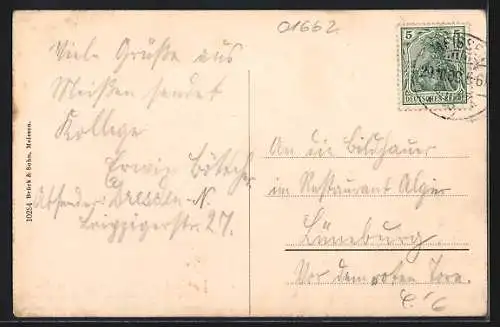 01662.
Viele Grüße aus
Meißen sendet
Kollege
Erwin
Absender: Dresden-N.
Leipzigerstr. 27.
10254 Brück & Sohn, Meissen.
5 5
DEUTSCHES REICH
MEISSEN
An die Bildhauer
im Restaurant Algier
Lüneburg.
Vor dem roten Tore.